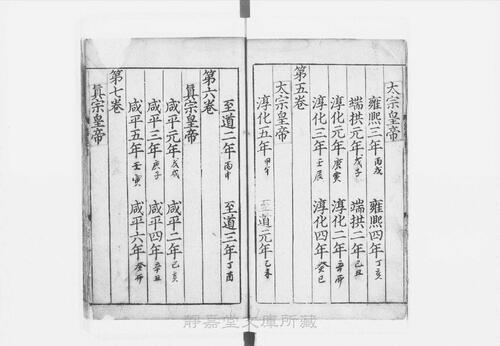 太宗皇帝
雍熙三年丙戌 雍熙四年丁亥
端拱元年戊子 端拱二年己丑
淳化元年庚寅 淳化二年辛卯
淳化三年壬辰 淳化四年癸巳
第五卷
太宗皇帝
淳化五年甲午 至道元年乙未
至道二年丙申 至道三年丁酉
第六卷
眞宗皇帝
咸平元年戊戌 咸平二年己亥
咸平三年庚子 咸平四年辛丑
咸平五年壬寅 咸平六年癸卯
第七卷
眞宗皇帝
靜嘉堂文庫所藏